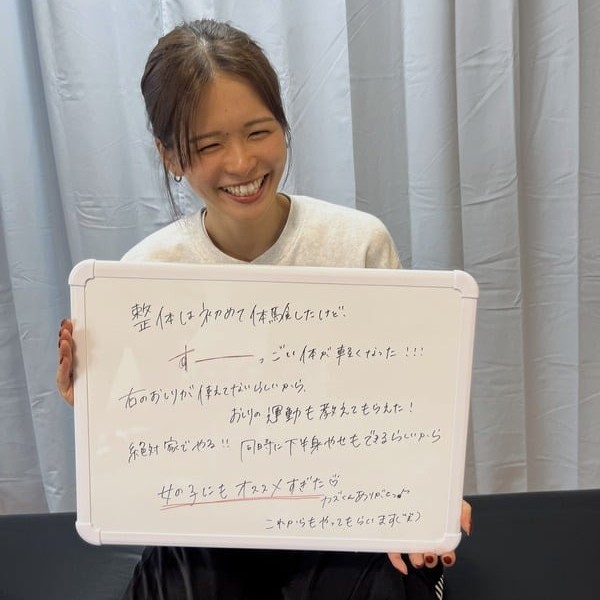 整体は初めて体験したけど、
すーーっごい体が軽くなった!!!
右のおしりが使えてないらしいから、
おしりの運動も教えてもらえた!
絶対家でやる!! 同時に下半身やせもできるらしいから
女の子にもオススメすぎた♡
カズくんありがとっ♪
これからもやってもらいます(